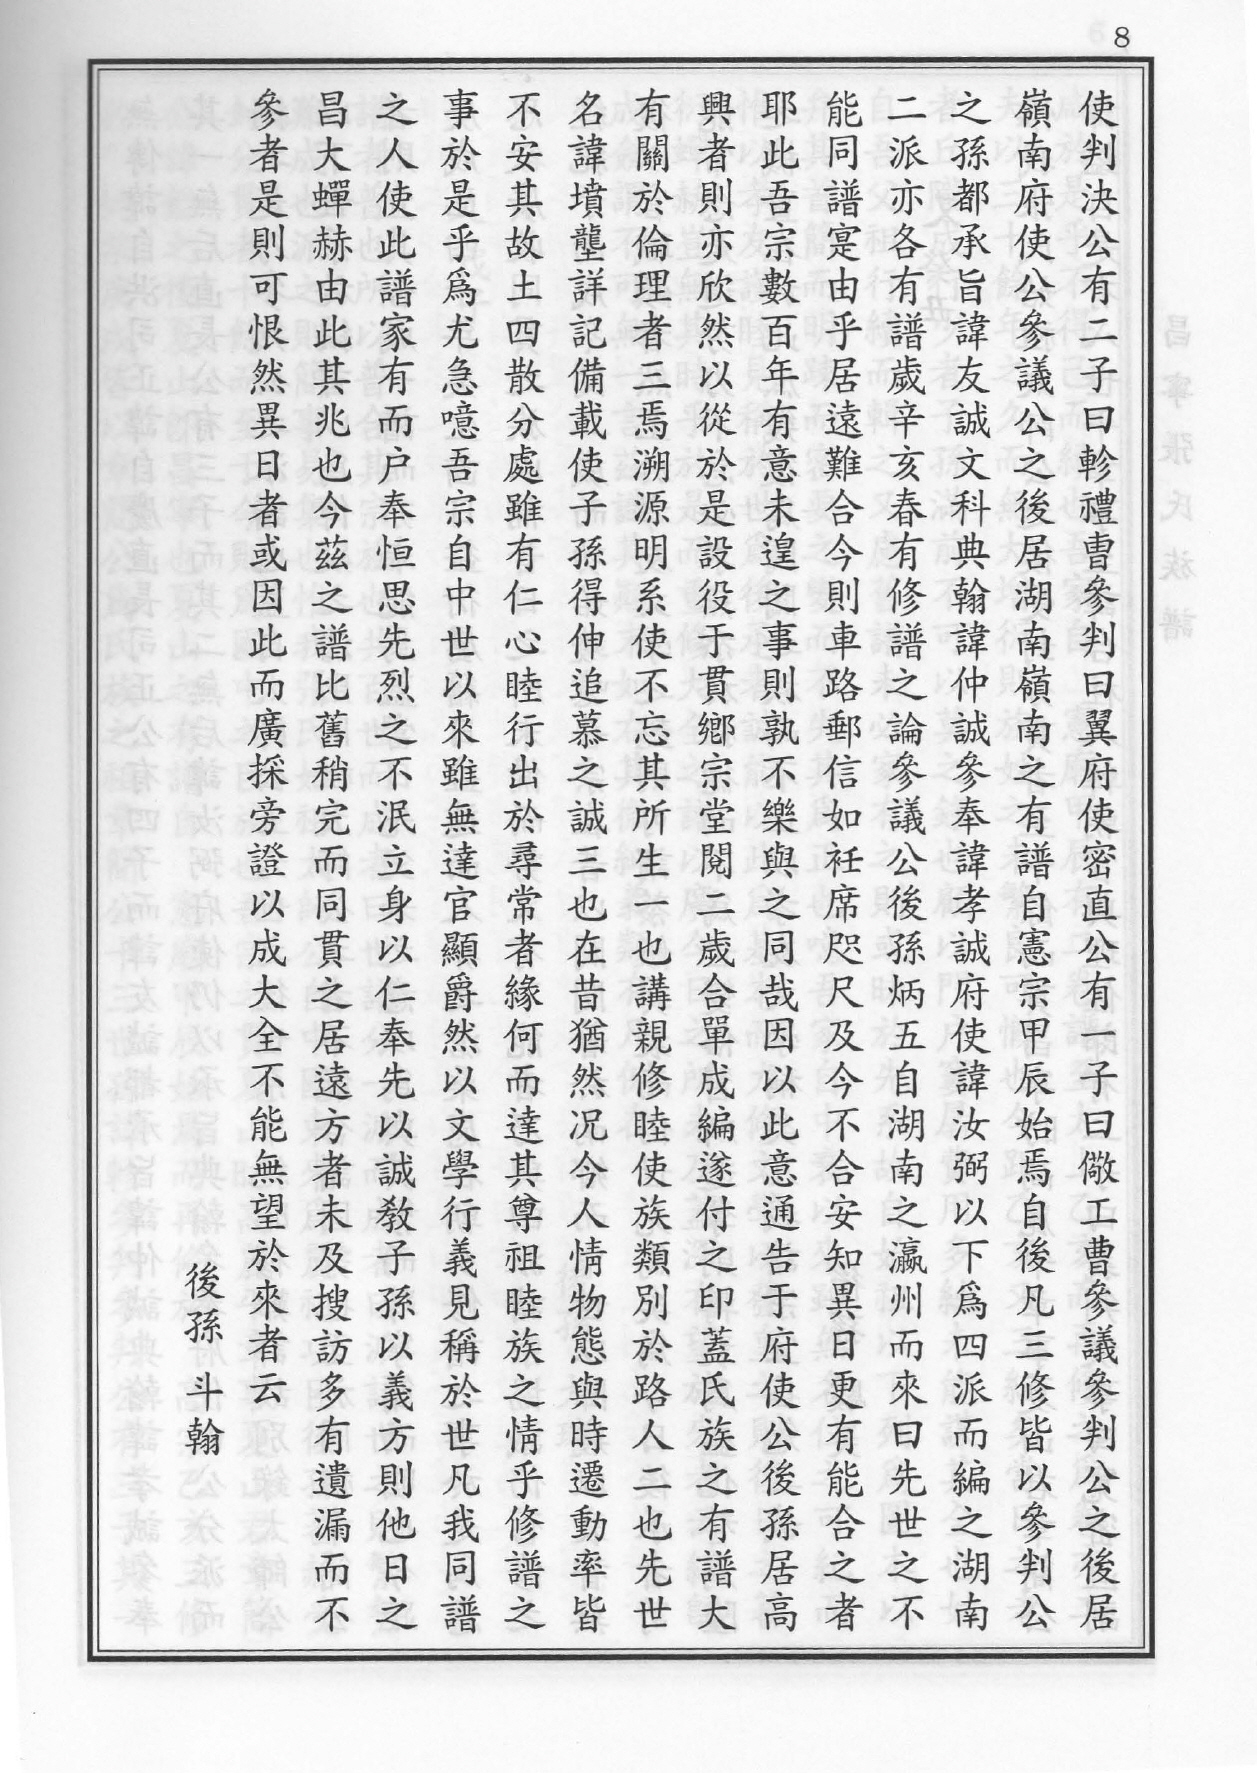 8
使判決公有二子曰軫禮曺參判曰翼府使密直公有一子曰儆工曹參議參判公之後居
嶺南府使公參議公之後居湖南嶺南之有譜自憲宗甲辰始焉自後凡三修皆以參判公
之孫都承旨諱友誠文科典翰諱仲誠參奉諱孝誠府使諱汝弼以下爲四派而編之湖南
二派亦各有譜歲辛亥春有修譜之論參議公後孫炳五自湖南之瀛州而來曰先世之不
能同譜寔由乎居遠難合今則車路郵信如衽席咫尺及今不合安知異日更有能合之者
耶此吾宗數百年有意未遑之事則孰不樂與之同哉因以此意通告于府使公後孫居高
興者則亦欣然以從於是設役于貫鄉宗堂閱二歲合單成編遂付之印蓋氏族之有譜大
有關於倫理者三焉溯源明系使不忘其所生一也講親修睦使族類別於路人二也先世
名諱墳壟詳記備載使子孫得伸追慕之誠三也在昔猶然况今人情物態與時遷動率皆
不安其故土四散分處雖有仁心睦行出於尋常者緣何而達其尊祖睦族之情乎修譜之
事於是乎爲尤急噫吾宗自中世以來雖無達官顯爵然以文學行義見稱於世凡我同譜
之人使此譜家有而户奉恒思先烈之不泯立身以仁奉先以誠敎子孫以義方則他日之
昌大蟬赫由此其兆也今茲之譜比舊稍完而同貫之居遠方者未及搜訪多有遺漏而不
參者是則可恨然異日者或因此而廣採旁證以成大全不能無望於來者云
後孫 斗翰